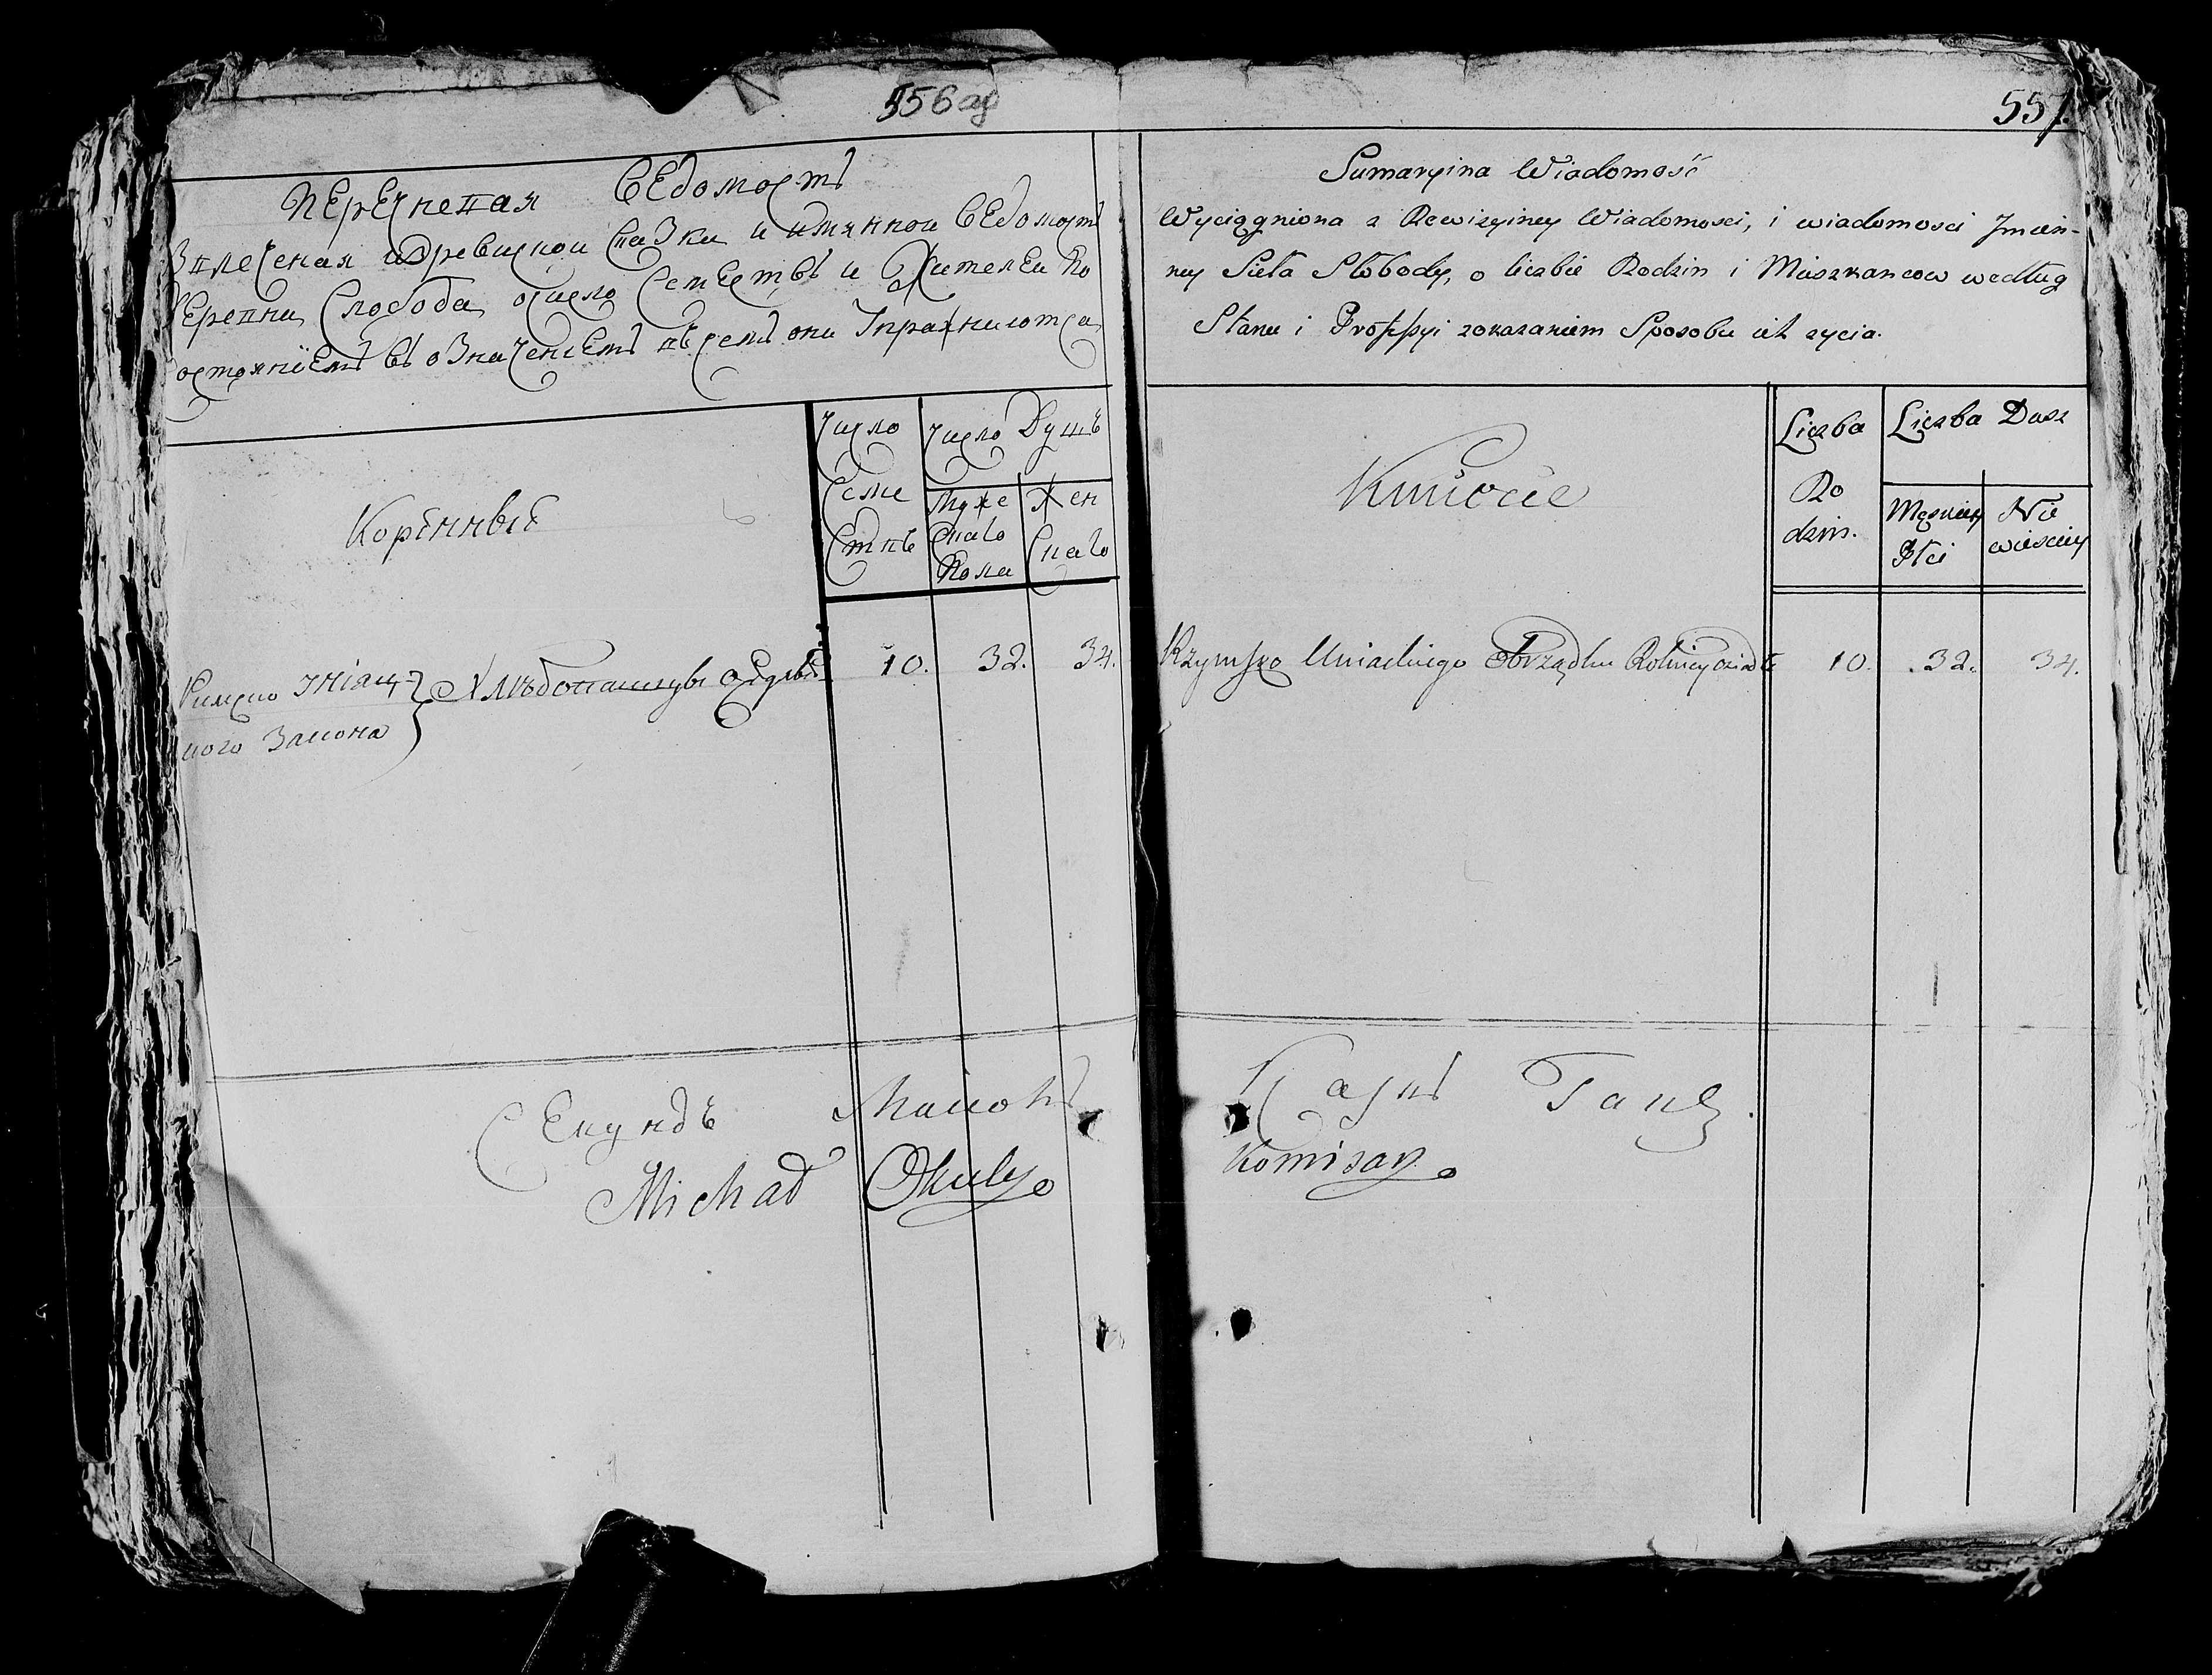 556 об
Перечневая Ведомость
Звлеченая изревиской Сказки и имянной Ведомости
Деревни Слобода, очисло Семействъ и Жителеи По
остояниемъ въ означениемъ въ чемъ они Упражнаются
Коренные
Число Семействъ
Число Душъ
Мужескаго Пола
Женскаго
Римско Уніацкого Закона
Хлебопашцы оседлые
10. 32. 34.
Секундъ Маиоръ
Michał Okuly
557.
Sumaryina Wiadomość
Wyciągniona z Rewizyiney Wiadomosci, i wiadomosci Jmien-
ney Sieła Słobody, o liczbie Rodzin i Mieszkancow według
Stanu i Professyi zokazaniem Sposobu ich zycia.
Kmiocie
Liczba Rodzin.
Liczba Dusz
Męskiey Płci
Niewiesciey
Rzymsko Uniackiego Obrządku Rolnicy osiadli
10. 32. 34.
Карлъ
Komisarz